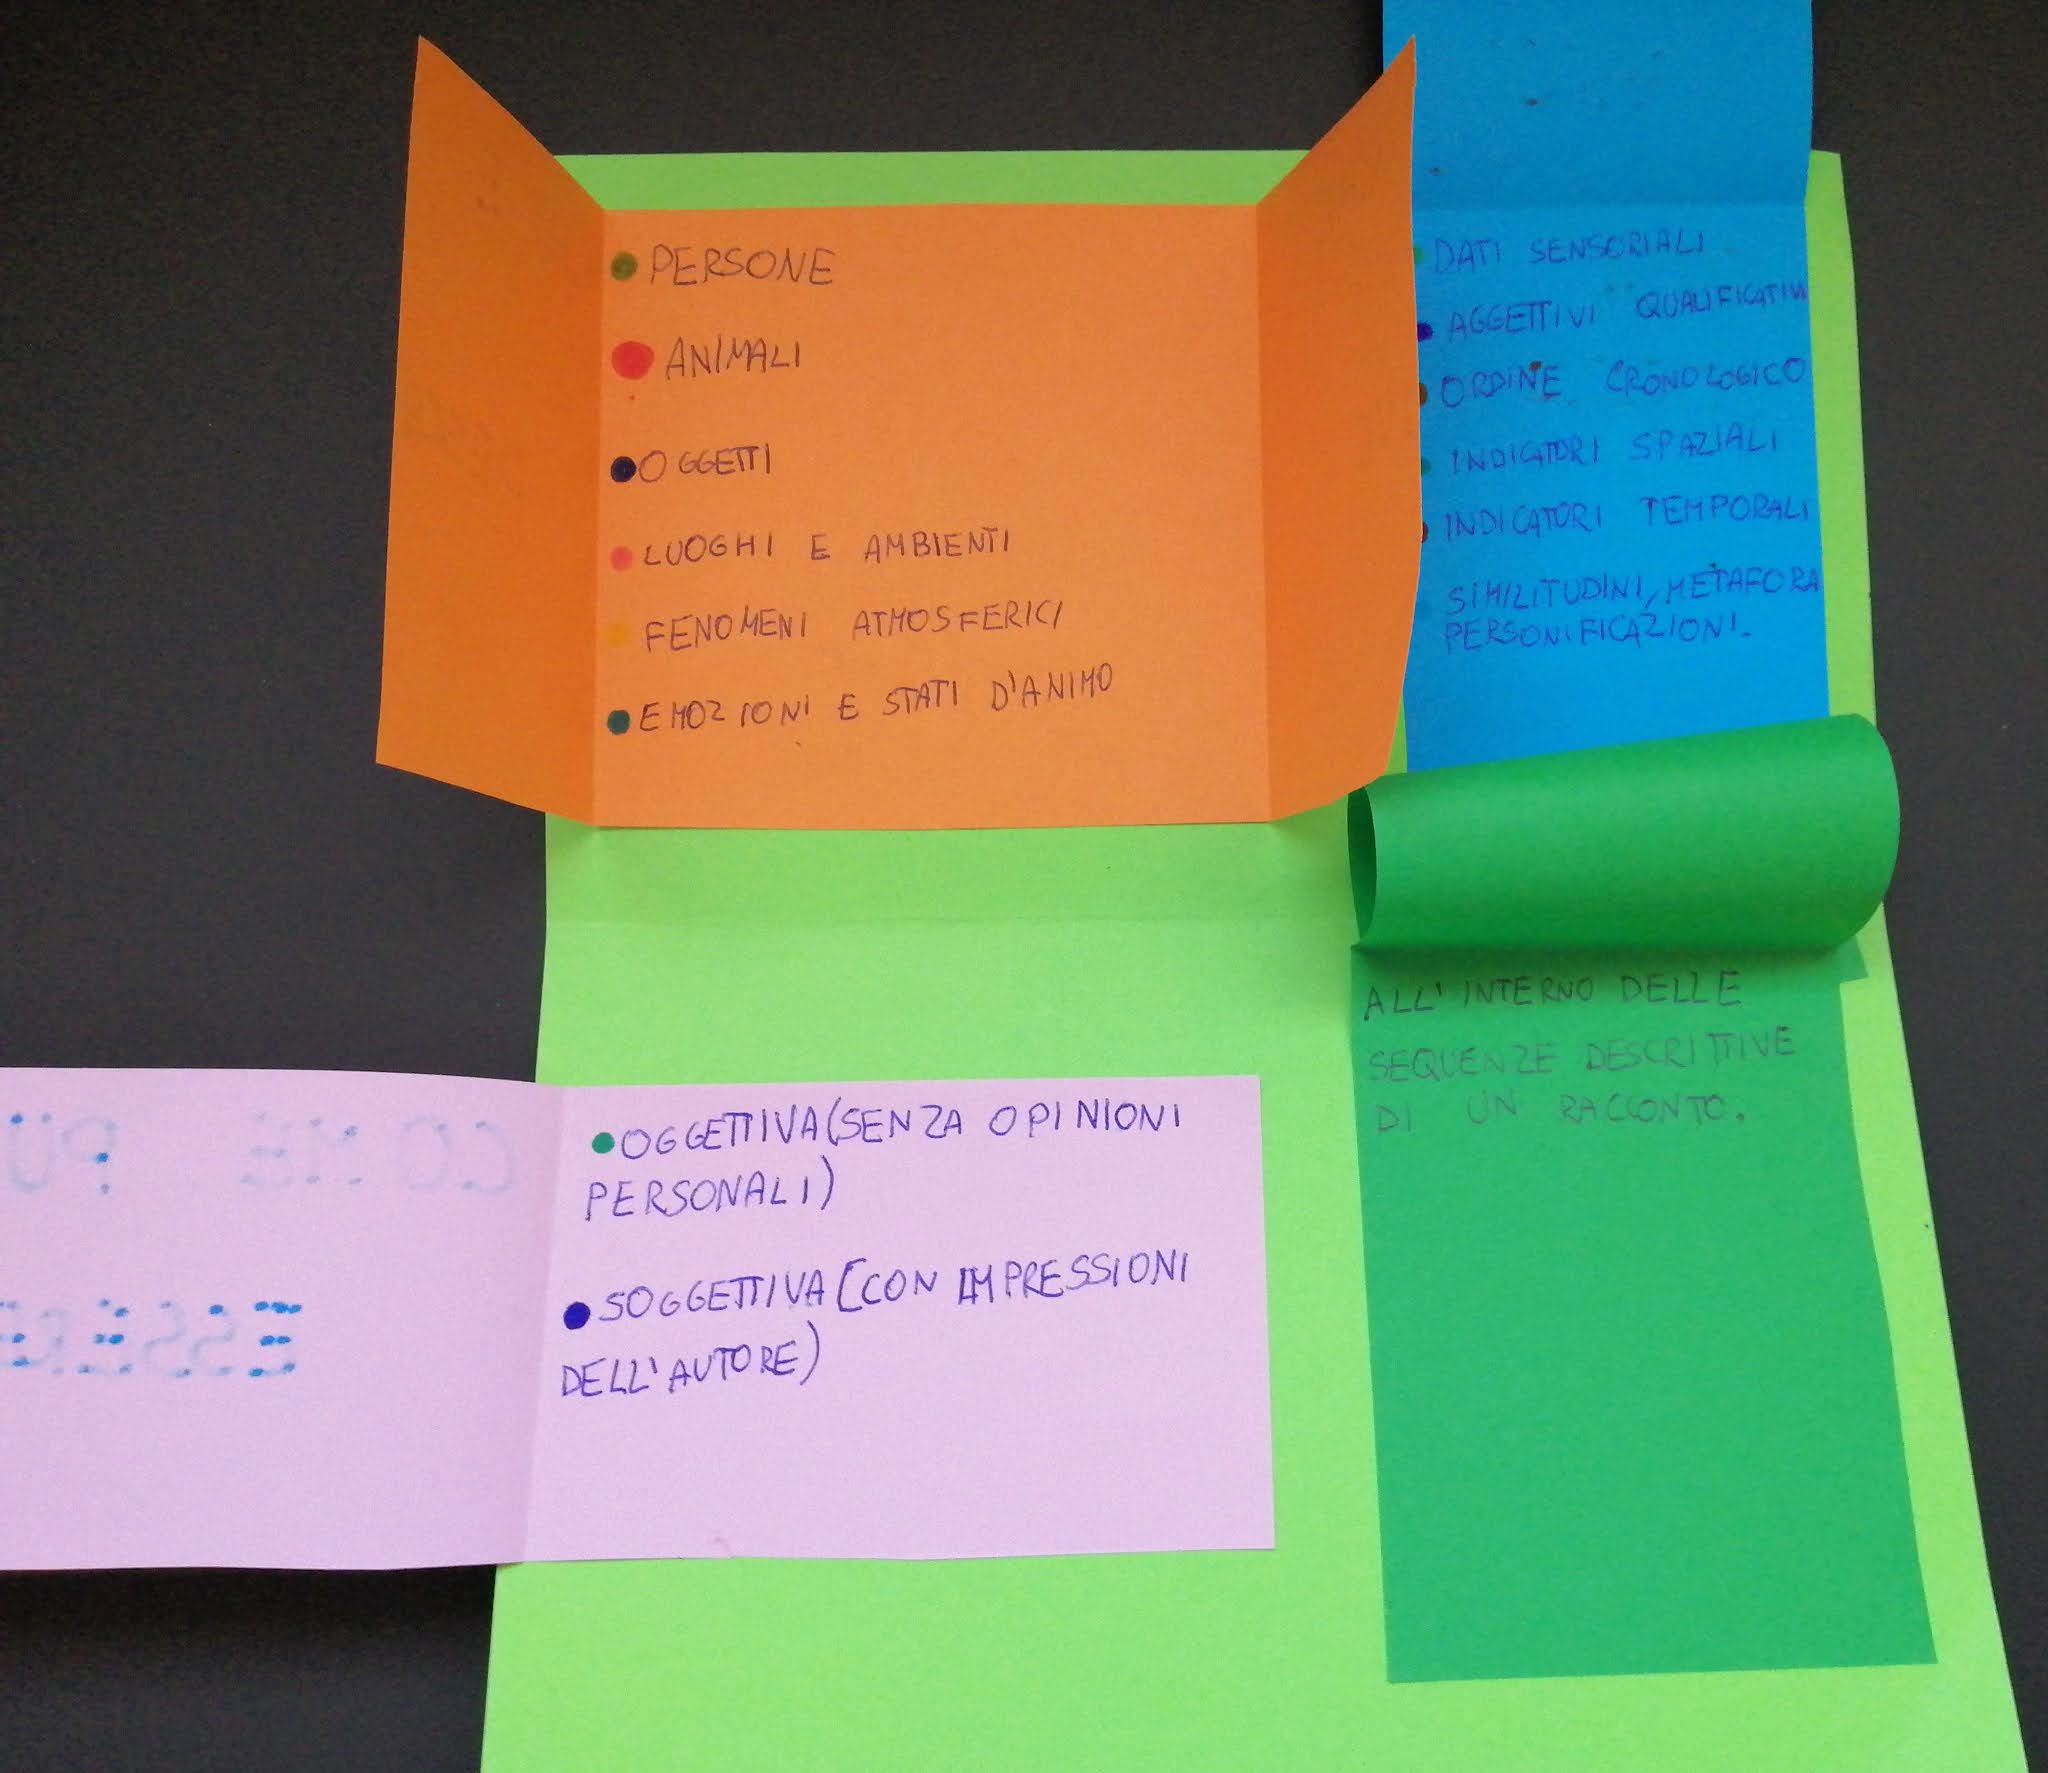 PERSONE
ANIMALI
OGGETTI
LUOGHI E AMBIENTI
FENOMENI ATMOSFERICI
EMOZIONI E STATI D'ANIMO
DATI SENSORIALI
AGGETTIVI QUALIFICATIVI
ORDINE CRONOLOGICO
INDICATORI SPAZIALI
INDICATORI TEMPORALI
SIMILITUDINI, METAFORA
PERSONIFICAZIONI.
COME PU
ESSERE
OGGETTIVA (SENZA OPINIONI
PERSONALI)
SOGGETTIVA (CON IMPRESSIONI
DELL'AUTORE)
ALL'INTERNO DELLE
SEQUENZE DESCRITTIVE
DI UN RACCONTO.